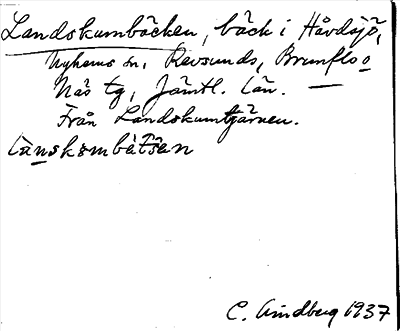 Landskumbäcken, bäck i Håvdsjö,
Nyhems sn, Revsunds, Brunflo o
Näs tg, Jämtl. län. —
Från Landskumtjärnen.
lànskømbètsen
C. Lindberg 1937